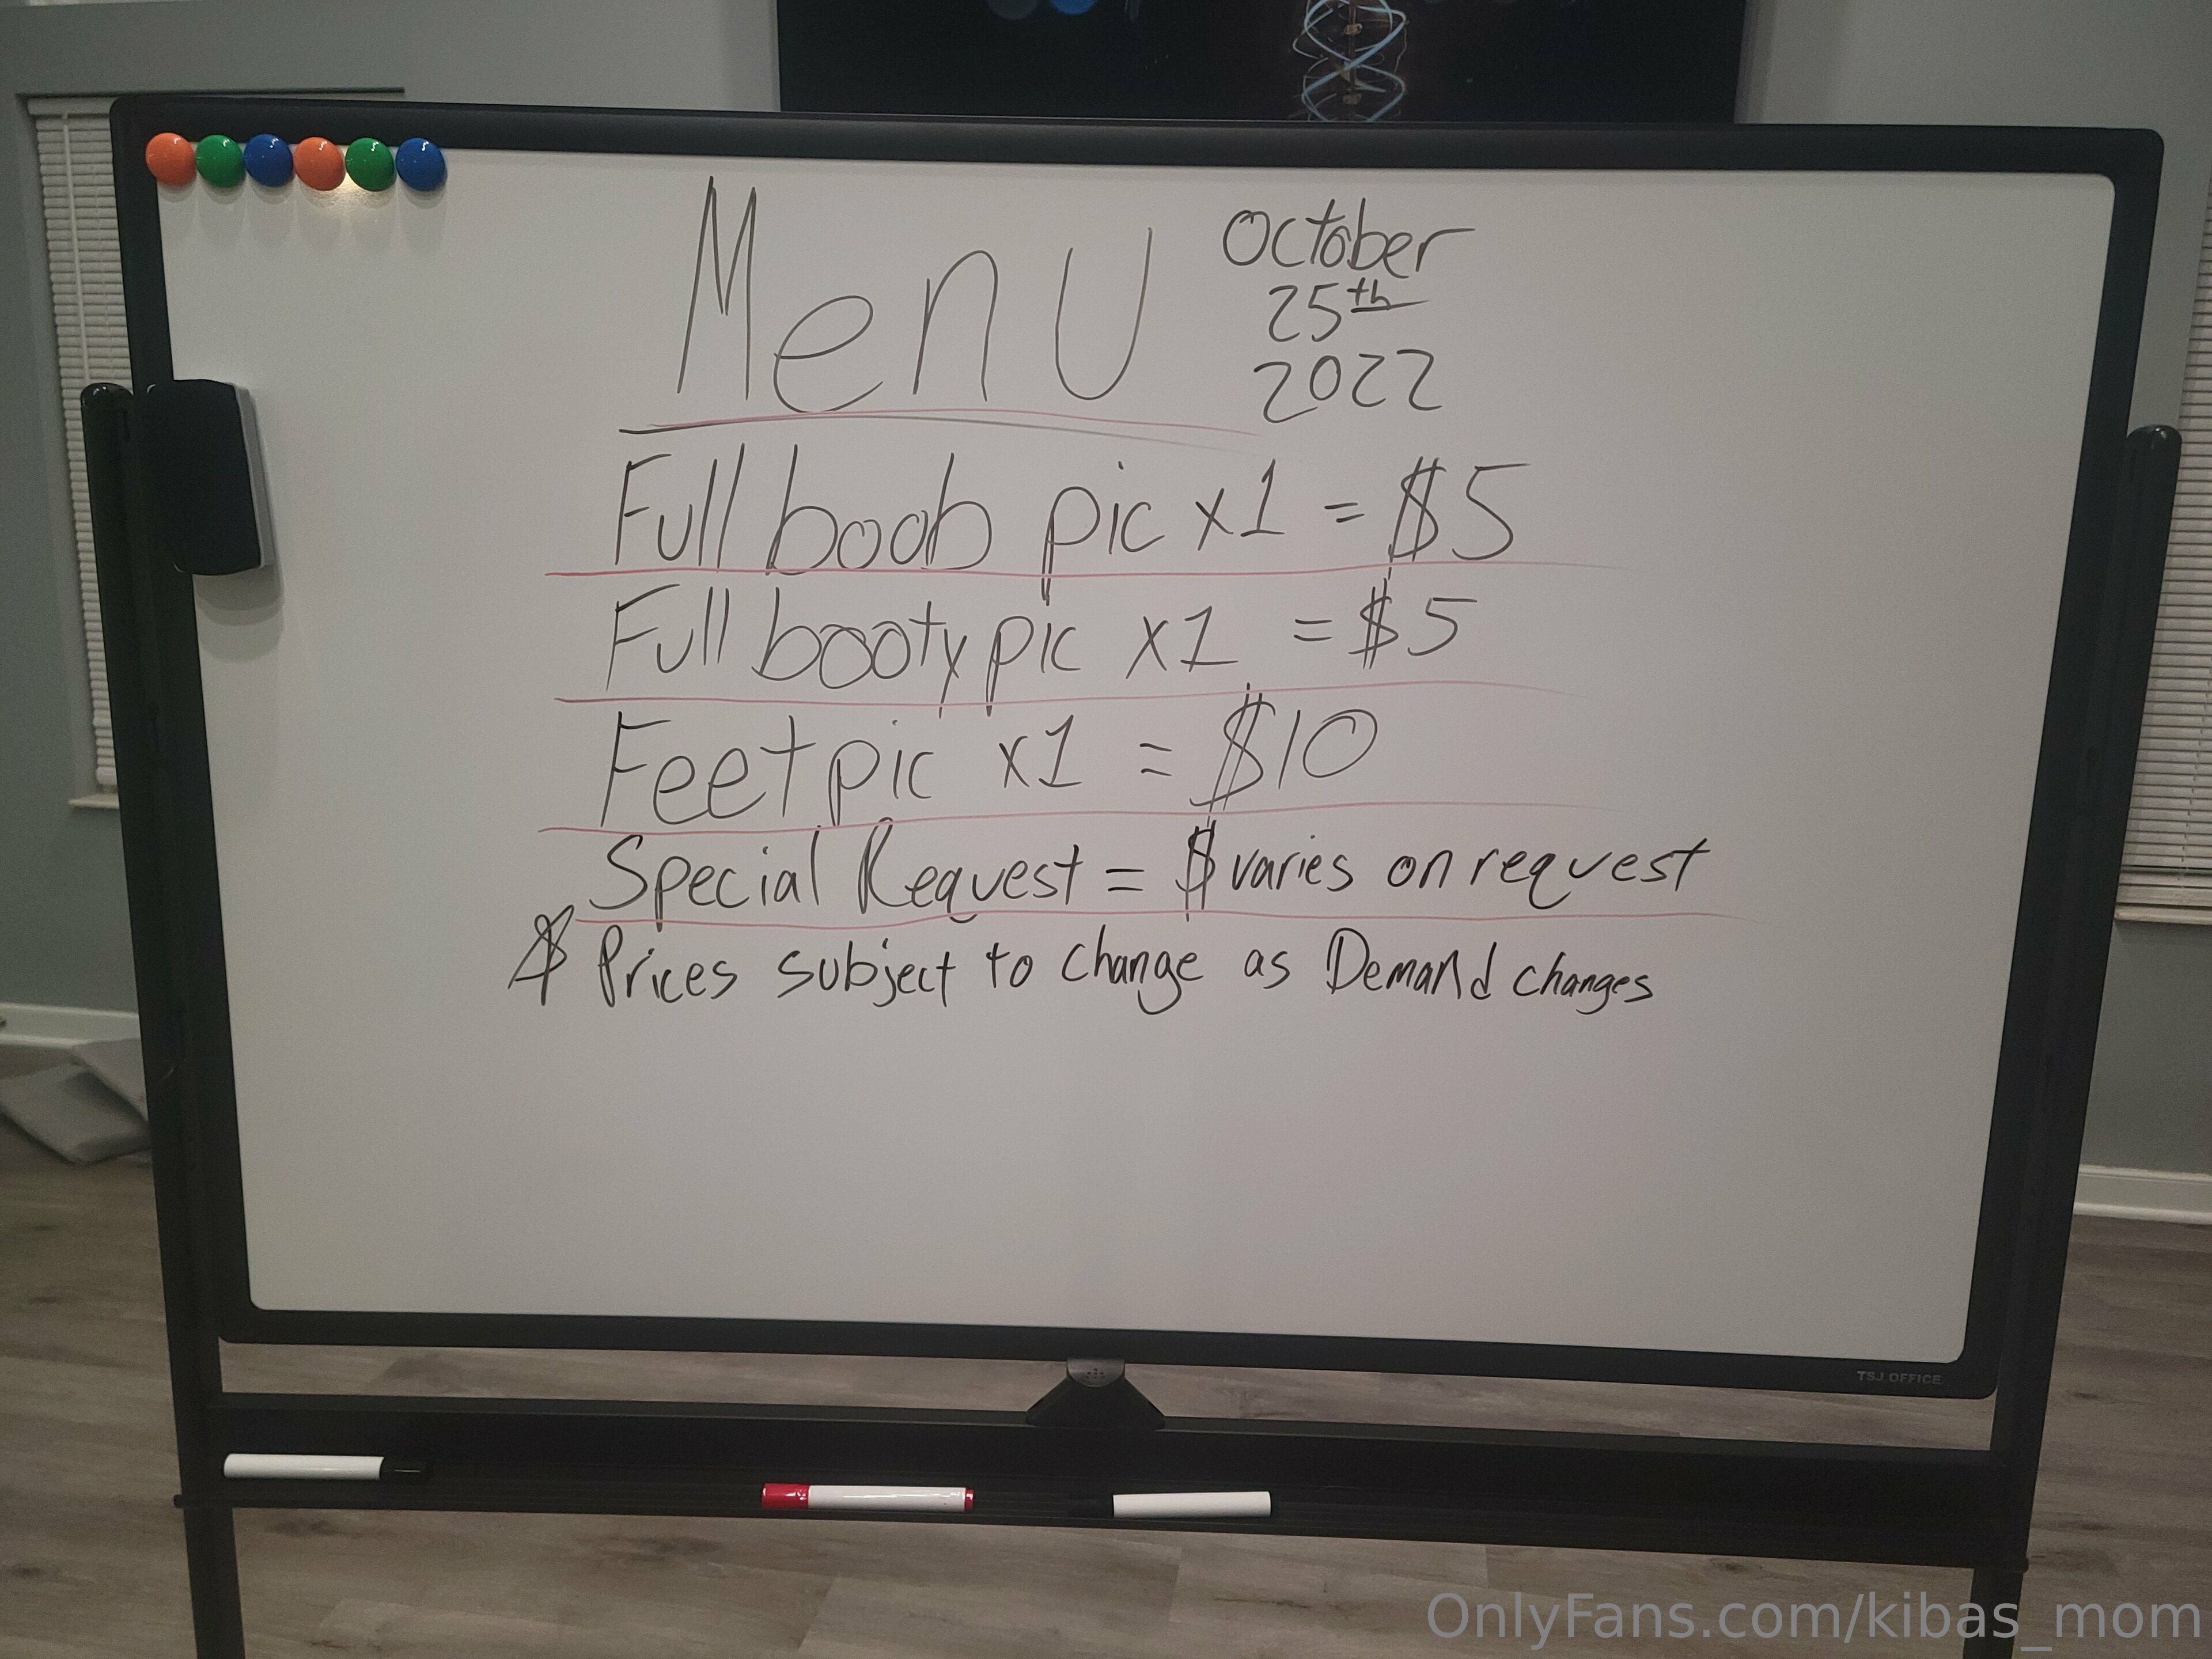 Menu
October
25th
2022
Full boob pic x1 = $5
Full booty pic x1 = $5
Feet pic x1 = $10
Special Request = $ varies on request
$ Prices subject to change as Demand changes
TSJ OFFICE
OnlyFans.com/kibas_mom